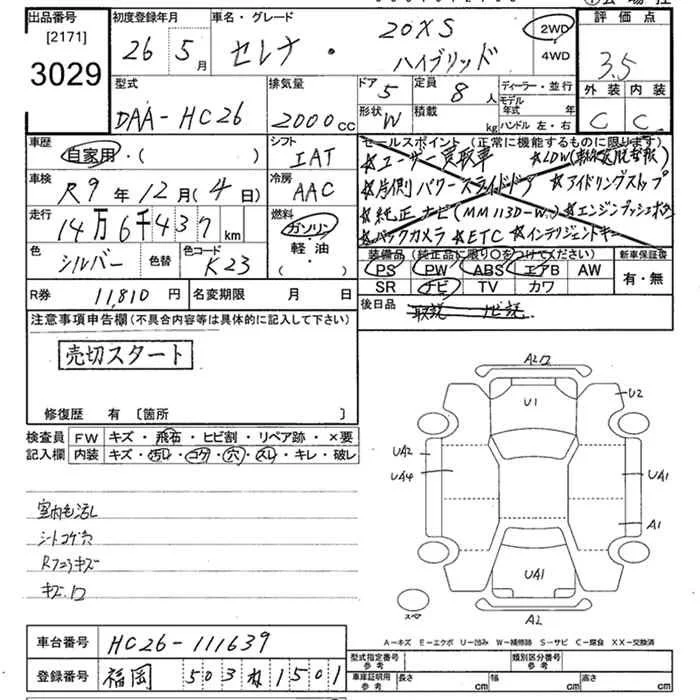 出品番号 初度登録年月 車名・グレード 評価点
[2171]
3029
26 5月 セレナ・ 20XS ハイブリッド
2WD
4WD
3.5
外装 内装
C C
型式 排気量 ドア 定員 ディーラー・並行
DAA-HC26 2000cc 5 8人
モデル年式 年
形状 W 積載 kg ハンドル 左・右
車歴 自家用・( ) シフト IAT
車検 R9年12月(4日) 冷房 AAC
走行 14万6千437km 燃料 ガソリン・軽油・( )
色 シルバー 色替 色コード K23
R券 11,810円 名変期限 月 日
セールスポイント (正常に機能するものに限ります)
☆ユーザー買取車 ☆LDW
☆片側パワースライドドア ☆アイドリングストップ
☆純正ナビ(MM113D-W) ☆エンジンプッシュ
☆バックカメラ ☆ETC ☆インテリジェントキー
装備品 (純正品に限り○をつけてください) 新車保証書
PS PW ABS エアB AW 有・無
SR ナビ TV カワ
後日品 取説 ナビ説
注意事項申告欄(不具合内容等は具体的に記入して下さい)
売切スタート
修復歴 有 〔箇所 〕
検査員 FW キズ・飛石・ヒビ割・リペア跡・×要
記入欄 内装 キズ・汚レ・コゲ・穴・スレ・キレ・破レ
室内毛汚し
シートコゲ穴
Rフロアキズ
U1
U2
UA2
UA4
UA1
A1
UA1
スペア
A-キズ E-エクボ U-凹み W-補修跡 S-サビ C-腐食 XX-交換済
車台番号 HC26-111639
登録番号 福岡 503 ね 1501
型式指定番号 参考 類別区分番号 参考
車庫証明用 参考 長さ cm 幅 cm 高さ cm